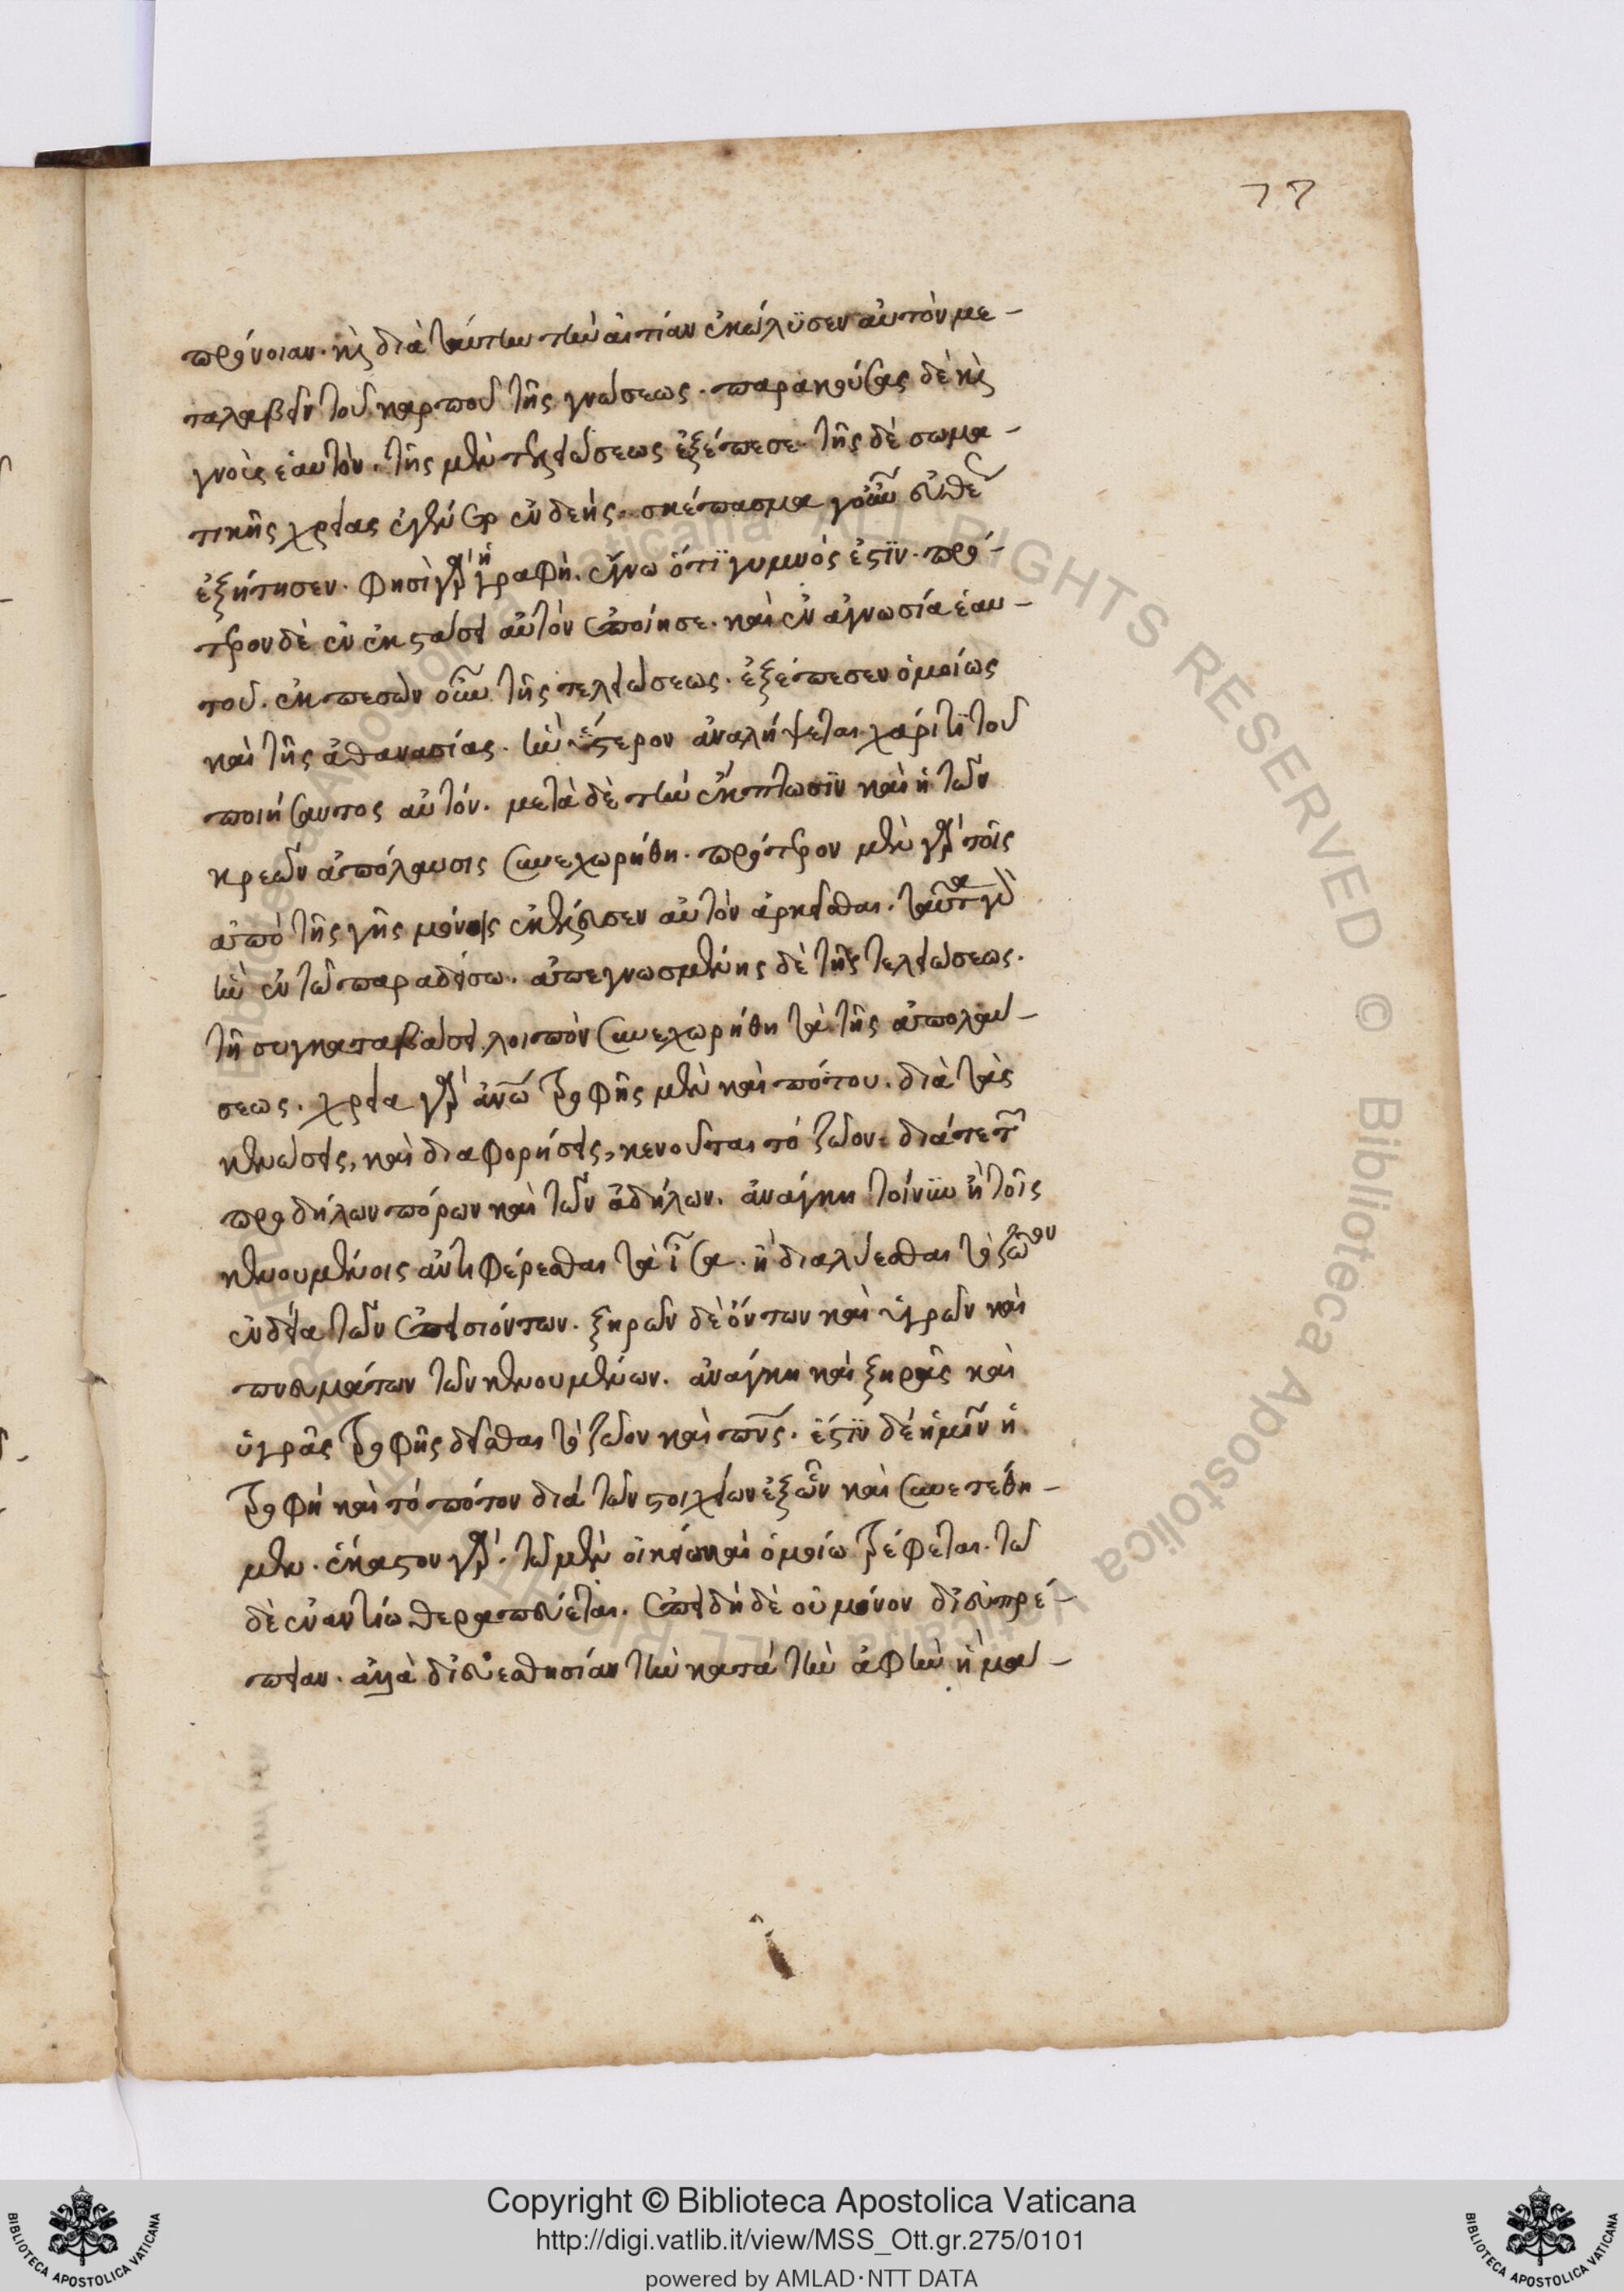 77
πρόνοιαν. καὶ διὰ ταύτην τὴν αἰτίαν ἐκώλϋσεν αὐτὸν με-
ταλαβεῖν τοῦ καρποῦ τῆς γνώσεως. παρακούσας δὲ καὶ
γνοὺς ἑαυτὸν. τῆς μὲν τελειώσεως ἐξέπεσε. τῆς δὲ σωμα-
τικῆς χρείας ἐγένετο ἐνδεής. σκέπασμα γοῦν εὐθὺς
ἐξήτησεν. φησὶ γὰρ ἡ γραφὴ. ἔγνω ὅτϊ γυμνὸς ἐστϊν. πρό-
τερον δὲ ἐν ἐκστάσει αὐτὸν ἐποίησε. καὶ ἐν ἀγνωσία ἑαυ-
τοῦ. ἐκπεσὼν οὖν τῆς τελειώσεως. ἐξέπεσεν ὁμοίως
καὶ τῆς ἀθανασίας. ἣν ὕστερον ἀναλήψεται χάριτϊ τοῦ
ποιήσαντος αὐτόν. μετὰ δὲ τὴν ἔκπτωσϊν καὶ ἡ τῶν
κρεῶν ἀπόλαυσις συνεχωρήθη. πρότερον μὲν γὰρ τοῖς
ἀπὸ τῆς γῆς μόνοις ἐκέλευσεν αὐτὸν ἀρκεῖσθαι. ταῦτα γὰρ
ἦν ἐν τῶ παραδείσω. ἀπεγνωσμένης δὲ τῆς τελειώσεως.
τῆ συγκαταβάσει λοιπὸν συνεχωρήθη τὰ τῆς ἀπολαύ-
σεως. χρεία γὰρ ἀνῶ τροφῆς μὲν καὶ πότου. διὰ τὰς
κενώσεις, καὶ διαφορήσεις, κενοῦται τὸ ζῶον. διά τε τῶν
προδήλων πόρων καὶ τῶν ἀδήλων. ἀνάγκη τοίνϋν ἢ τοῖς
κενουμένοις ἀντεισφέρεσθαι τὰ ἶσα. ἢ διαλύεσθαι τὸ ζῶον
ἐνδεία τῶν ἐπεισιόντων. ξηρῶν δὲ ὄντων καὶ ὑγρῶν καὶ
πνευμάτων τῶν κενουμένων. ἀνάγκη καὶ ξηρᾶς καὶ
ὑγρᾶς τροφῆς δεῖσθαι τὸ ζῶον καὶ πνς. ἔστϊν δὲ ἡμῖν ἡ
τροφὴ καὶ τὸ πότον διὰ τῶν στοιχείων ἐξ ὧν καὶ συνετέθη-
μεν. ἕκαστον γὰρ. τῶ μὲν οἰκείω καὶ ὁμοίω τρέφεται. τῶ
δὲ ἐναντίω θεραπεύεται. ἐπειδὴ δὲ οὐ μόνον δι' εὐπρέ-
πειαν. ἀλλὰ δι' εὐεσθησίαν τὴν κατὰ τὴν ἁφὴν ἡμαύ-
Copyright © Biblioteca Apostolica Vaticana
http://digi.vatlib.it/view/MSS_Ott.gr.275/0101
powered by AMLAD·NTT DATA
BIBLIOTECA APOSTOLICA VATICANA
BIBLIOTECA APOSTOLICA VATICANA